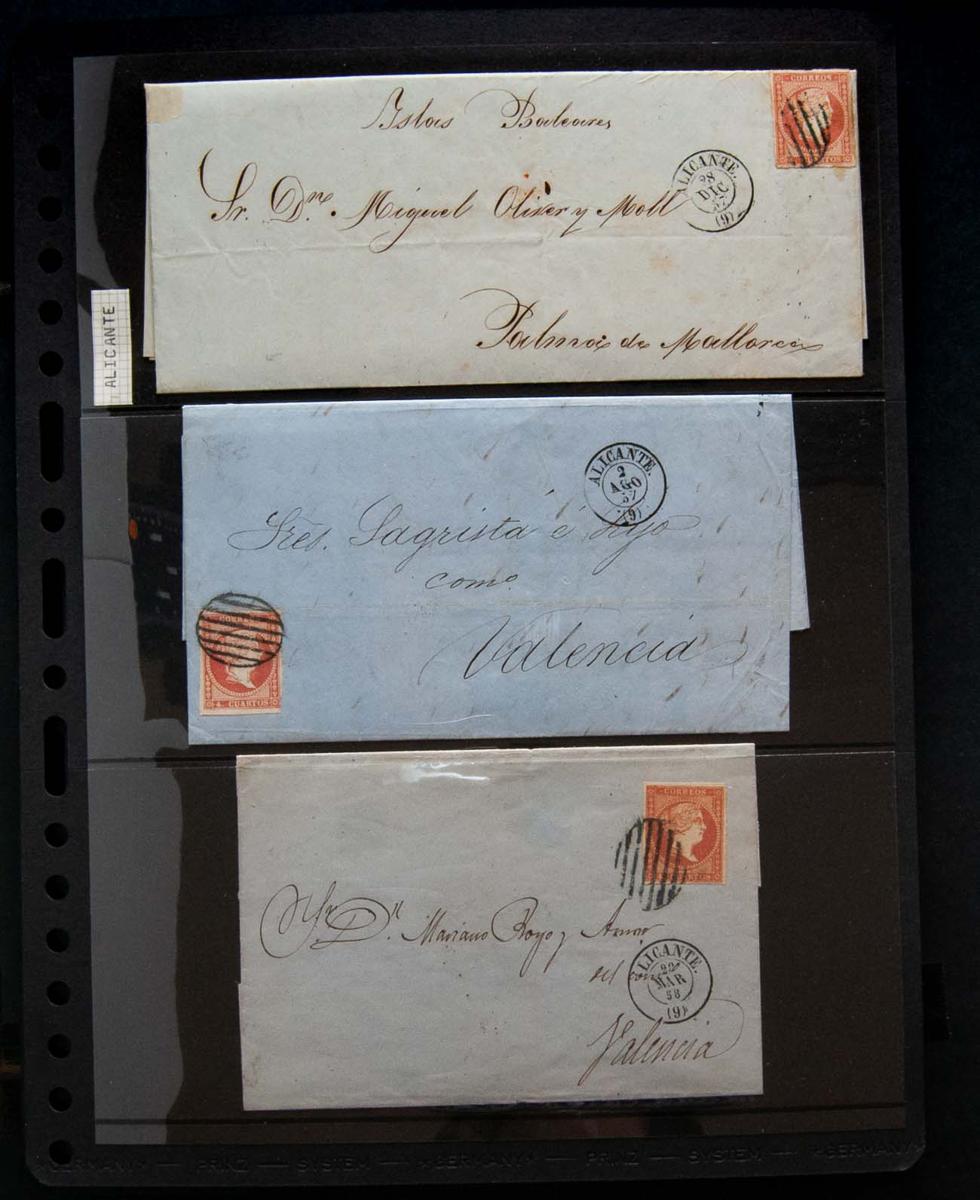 Islas Baleares
CORREOS
Sr. Dn. Miguel Oliver y Moll
ALICANTE.
28
DIC
57
(9)
Palma de Mallorca
ALICANTE
ALICANTE.
2
AGO
57
(9)
Sres. Sagristá é hijo
como.
Valencia
CORREOS
4 CUARTOS
CORREOS
CUARTOS
Sr. Dn. Mariano Royo y
del com
ALICANTE.
22
MAR
58
(9)
Valencia
*GERMANY* — PRINZ — SYSTEM — *GERMANY* — PRINZ — SYSTEM — *GERMANY